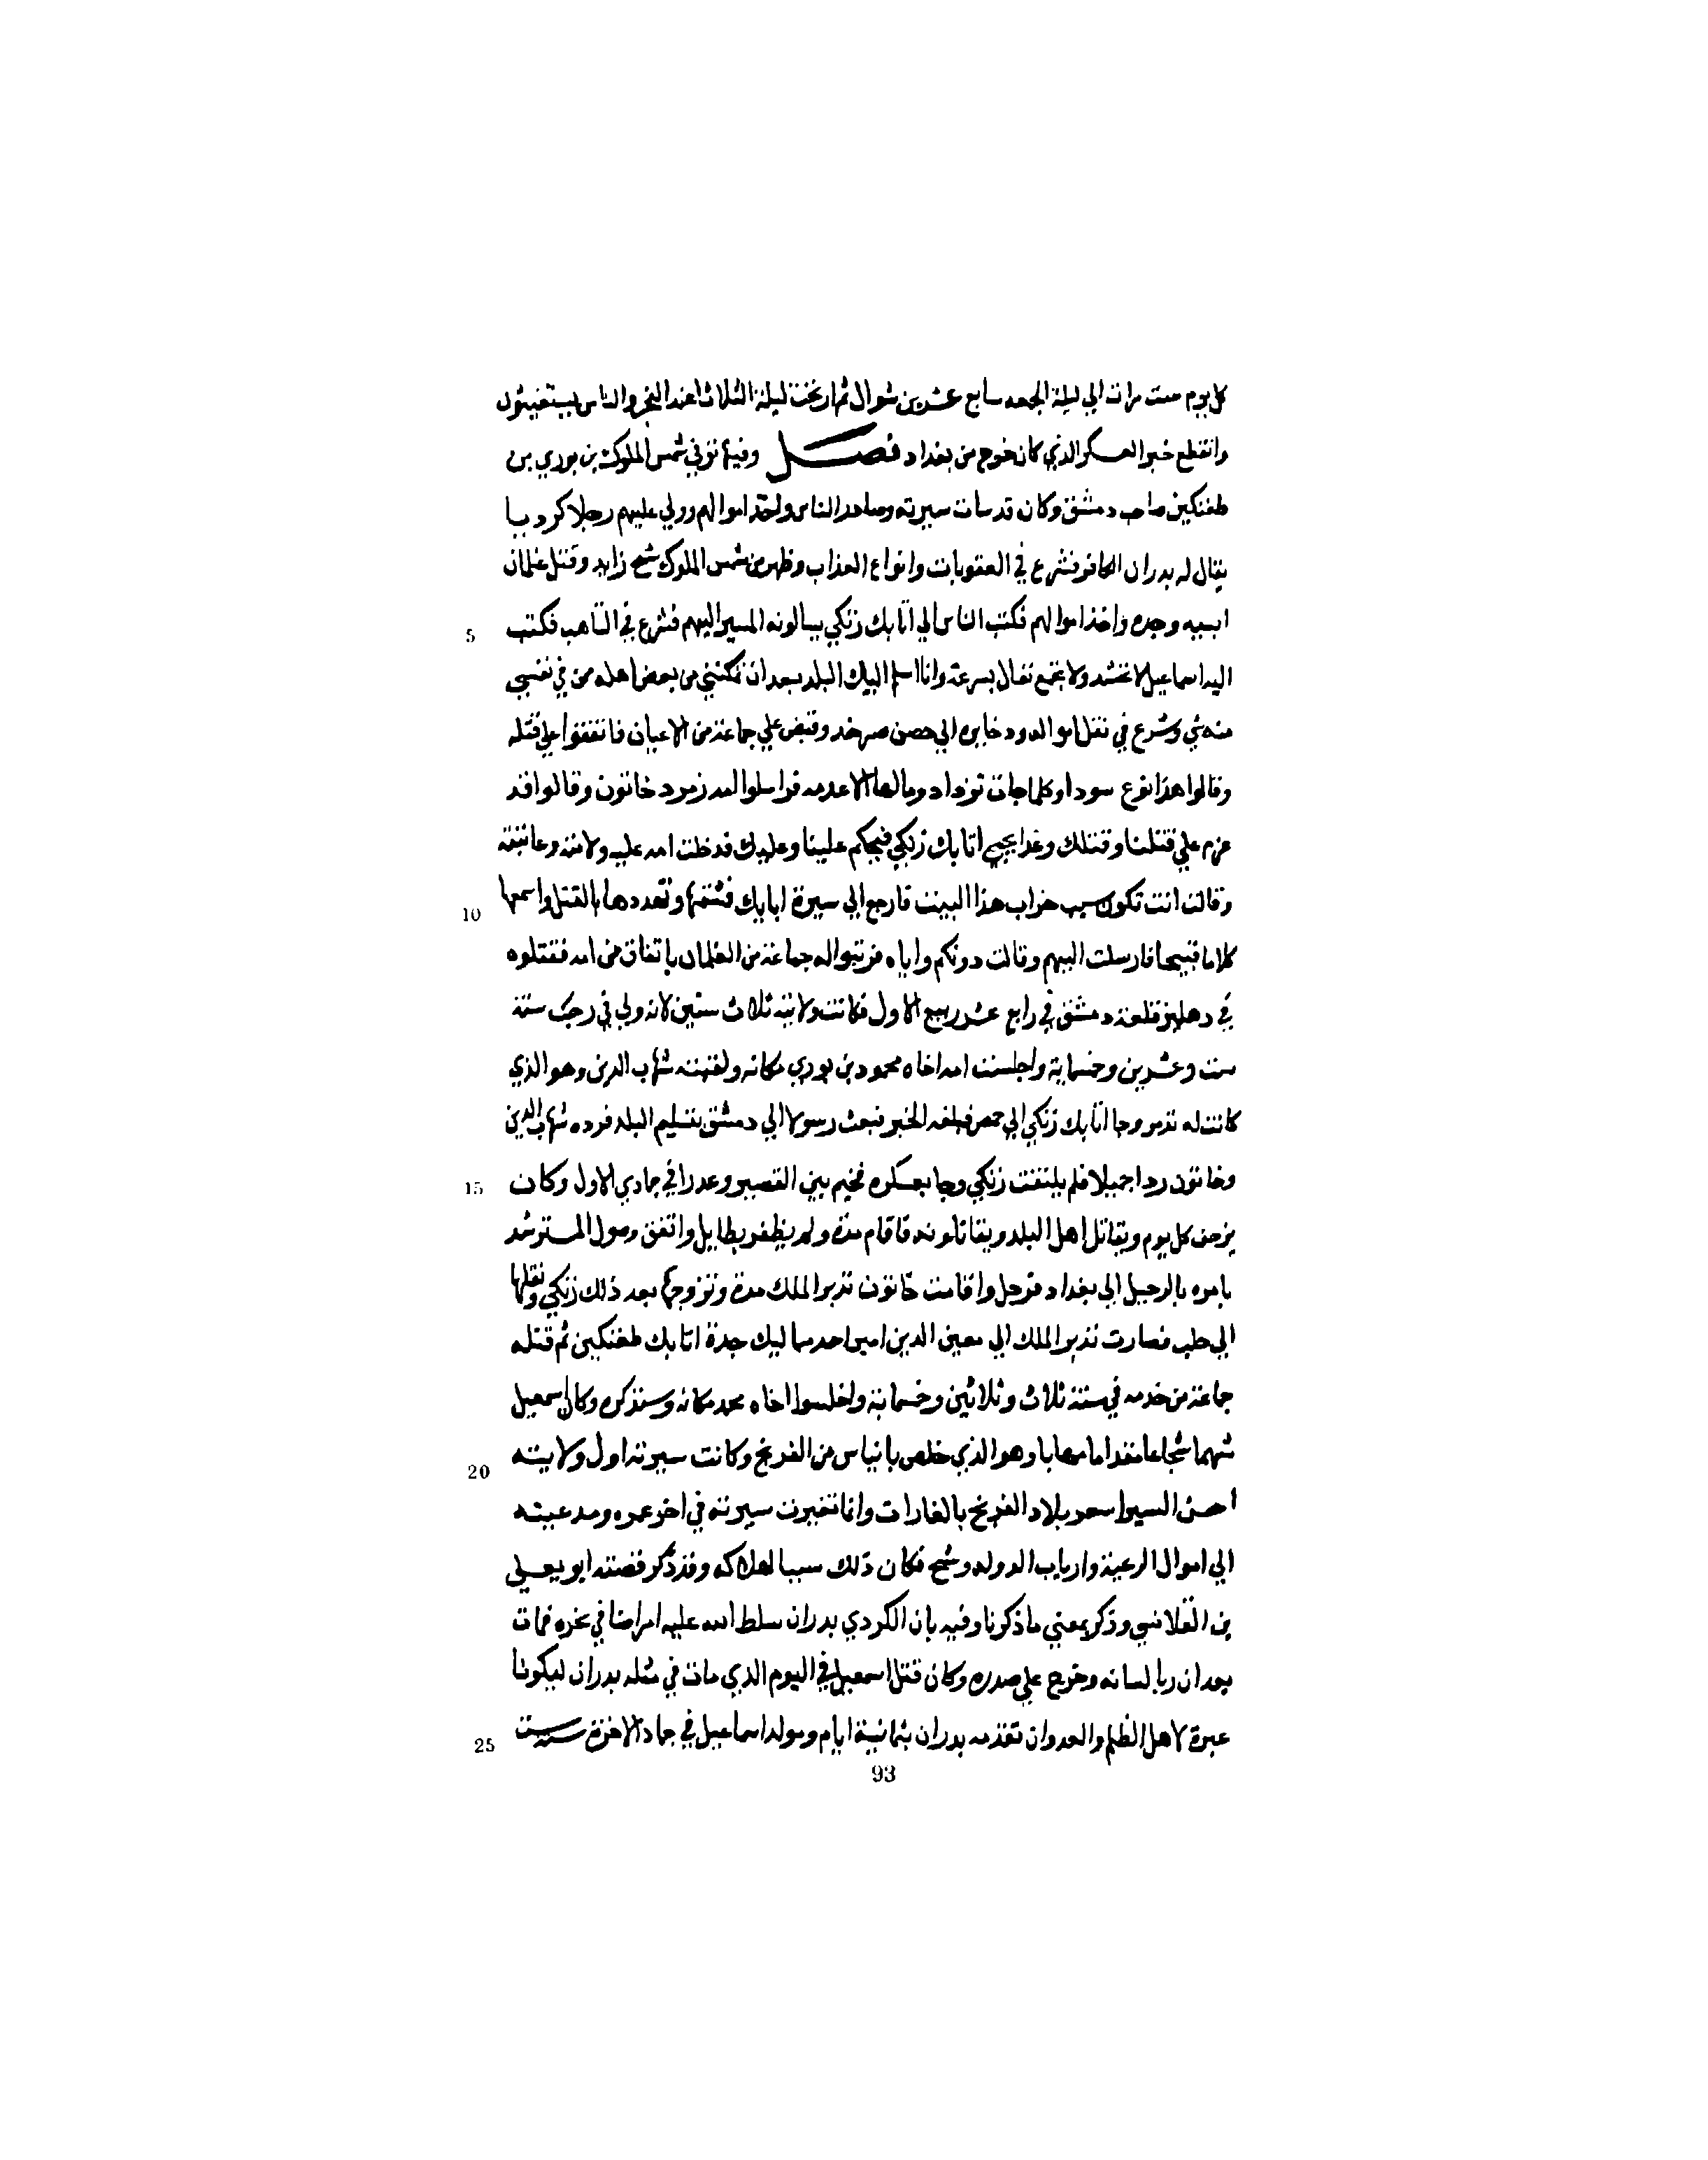 كل يوم ست مرات الي ليلة الجمعه سابع عشرين شوال ثم ارتخت ليلة الثلاثا عند الفجر والناس يستغيثون
وانقطع خبر العسكر الذي كان خرج من بغداد فصل وفيها توفي شمس الملوك بن بوري بن
طغتكين صاحب دمشق وكان قد سات سيرته وصادر الناس واخذ اموالهم وولي عليهم رجلا كرديا
يقال له بدران الكافر فشرع في العقوبات وانواع العذاب وظهر من شمس الملوك شح زايد وقتل غلمان
5 ابيه وجده واخذ اموالهم فكتب الناس الي اتابك زنكي يسالونه المسير اليهم فشرع في التاهب فكتب
اليه اسماعيل لا تحتشد ولا تجمع تعال بسرعة وانا اسلم اليك البلد بعد ان تمكنني من بعض اهله ممن في نفسي
منه شي وشرع في نقل امواله وذخايره الي حصن صرخد وقبض علي جماعة من الاعيان فاتفقوا علي قتله
وقالوا هذا نوع سودا وكلما جات تزداد وما لها الا عدمه فراسلوا امه زمرد خاتون وقالوا قد
عزم علي قتلنا وقتلك وغدا يجي اتابك زنكي فيحكم علينا وعليك فدخلت امه عليه ولامته وعاتبته
10 وقالت انت تكون سبب خراب هذا البيت فارجع الي سيرة ابايك فشتمها وتهددها بالقتل واسمعها
كلاما قبيحا فارسلت اليهم وقالت دونكم واياه فرتبوا له جماعة من الغلمان باتفاق من امه فقتلوه
في دهليز قلعة دمشق في رابع عشر ربيع الاول فكانت ولايته ثلاث سنين لانه ولي في رجب سنة
ست وعشرين وخمسماية واجلست امه اخاه محمود بن بوري مكانه ولقبته شهاب الدين وهو الذي
كانت له تدمر وجا اتابك زنكي الي حمص فبلغه الخبر فبعث رسولا الي دمشق بتسليم البلد فرده شهاب الدين
15 وخاتون ردا جميلا فلم يلتفت زنكي وجا بعسكره فخيم بين القصير وعدرا في جمادي الاول وكان
يزحف كل يوم ويقاتل اهل البلد ويقاتلونه فاقام مدة ولم يظفر بطايل واتفق وصول المسترشد
يامره بالرحيل الي بغداد فرحل واقامت خاتون تدبر الملك مدة وتزوجها بعد ذلك زنكي ونقلها
الي حلب فصارت تدبير الملك الي معين الدين امير احد مماليك جدة اتابك طغتكين ثم قتله
جماعة من خدمه في سنة ثلاث وثلاثين وخمسماية واجلسوا اخاه محمد مكانه وسنذكره وكان اسمعيل
20 شهما شجاعا مقداما مهابا وهو الذي خلص بانياس من الفرنج وكانت سيرته اول ولايته
احسن السير اسعر بلاد الفرنج بالغارات وانما تغيرت سيرته في اخر عمره ومد عينيه
الي اموال الرعية وارباب الدوله وشح فكان ذلك سببا لهلاكه وقد ذكر قصته ابو يعلي
بن القلانسي وذكر بمعني ما ذكرنا وفيه بان الكردي بدران سلط الله عليه امراضا في نحره فمات
بعد ان ربا لسانه وخرج علي صدره وكان قتل اسمعيل في اليوم الذي مات في مثله بدران ليكونا
25 عبرة لاهل الظلم والعدوان تقدمه بدران بثمانية ايام ومولد اسماعيل في جمادة الاخرة سنة ست
93